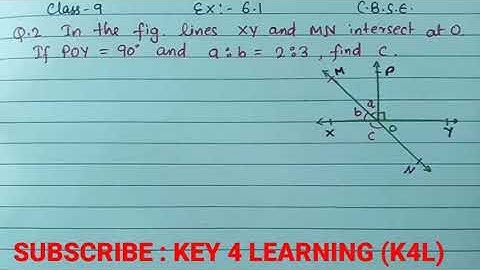 Class-9 Ex:- 6.1 C.B.S.E.
Q.2 In the fig. lines XY and MN intersect at O.
If POY = 90° and a:b = 2:3, find C.
M P
a
b
X C O Y
N
SUBSCRIBE : KEY 4 LEARNING (K4L)